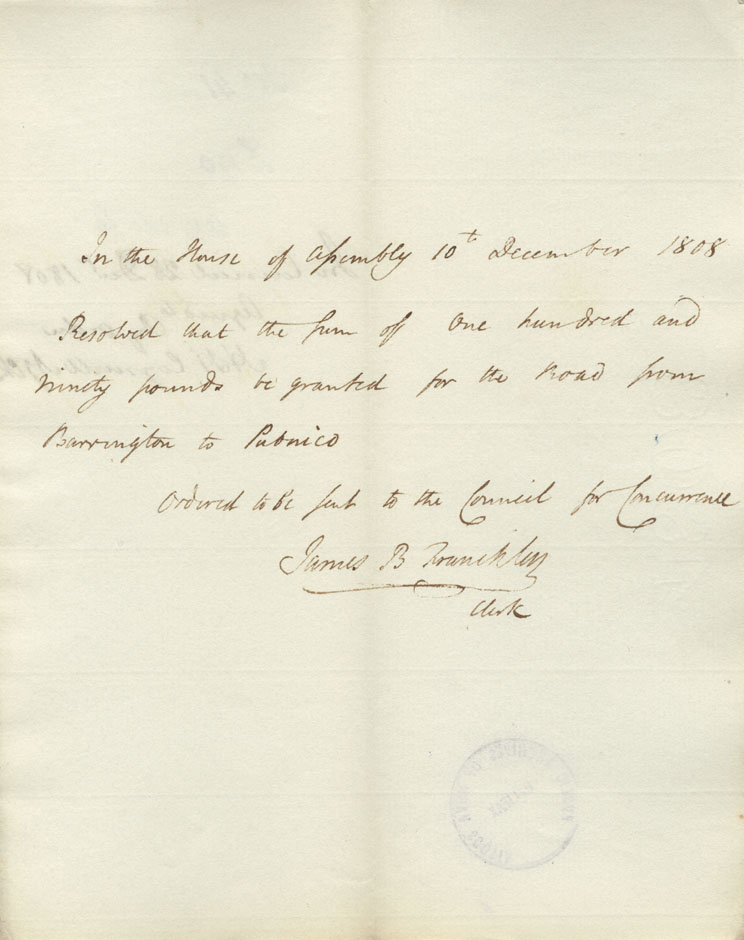 In the House of Assembly 10t December 1808
Resolved that the Sum of One hundred and
ninety pounds be granted for the Road from
Barrington to Pubnico
Ordered to be sent to the Council for Concurrence
James B Franckly
Clerk